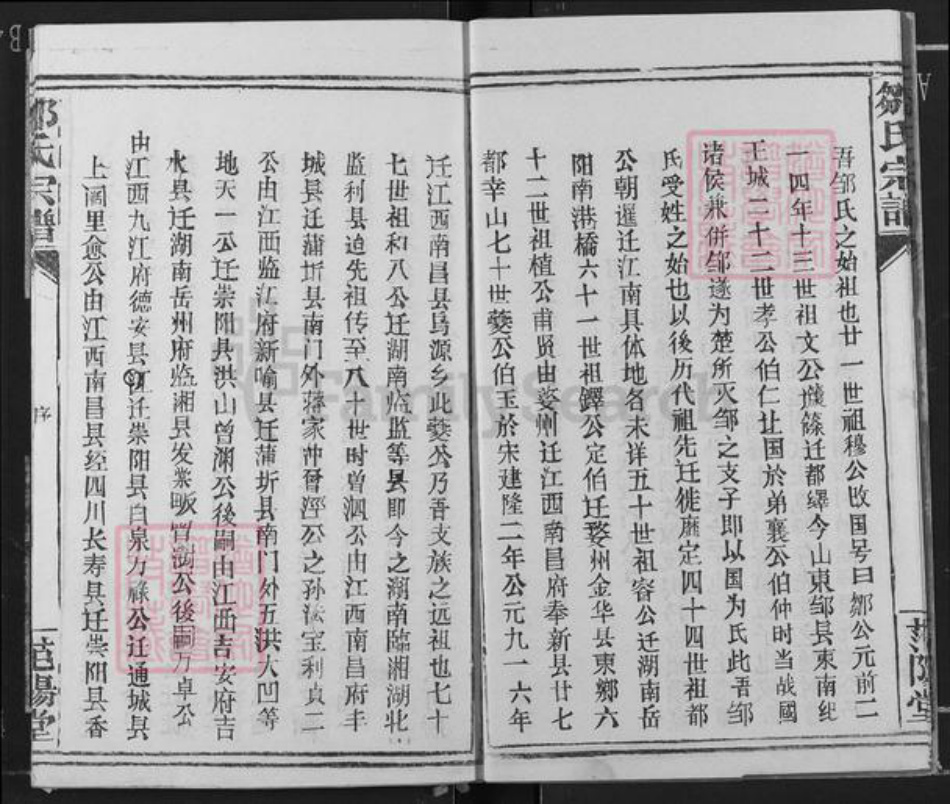 鄒氏宗譜
范陽堂
吾邹氏之始祖也廿一世祖穆公改国号曰鄒公元前二
一四年十三世祖文公籧篨迁都繹今山東邹县東南纪
王城二十二世孝公伯仁让国於弟襄公伯仲时当战國
诸侯兼併邹遂为楚所灭邹之支子即以国为氏此吾邹
氏受姓之始也以後历代祖先迁徙靡定四十四世祖都
公朝暹迁江南具体地各未详五十世祖容公迁湖南岳
阳南港橋六十一世祖鐸公定伯迁婺州金华县東鄉六
十二世祖植公甫贤由婺州迁江西南昌府奉新县廿七
都幸山七十世夔公伯玉於宋建隆二年公元九一六年
迁江西南昌县乌源乡此夔公乃吾支族之远祖也七十
七世祖和八公迁湖南临监等县即今之湖南臨湘湖北
监利县迨先祖传至八十世时曾泗公由江西南昌府丰
城县迁蒲圻县南门外蒋家冲曾溼公之孙法宝利貞二
公由江西临江府新喻县迁蒲圻县南门外五洪大凹等
地天一公迁崇阳县洪山曾渊公後嗣由江西吉安府吉
水县迁湖南岳州府临湘县发裳畈曾澍公後嗣万卓公
由江西九江府德安县江迁崇阳县白泉力祿公迁通城县
上阔里愈公由江西南昌县经四川长寿县迁崇阳县香
鄒氏宗譜
序
范陽堂
FamilySearch